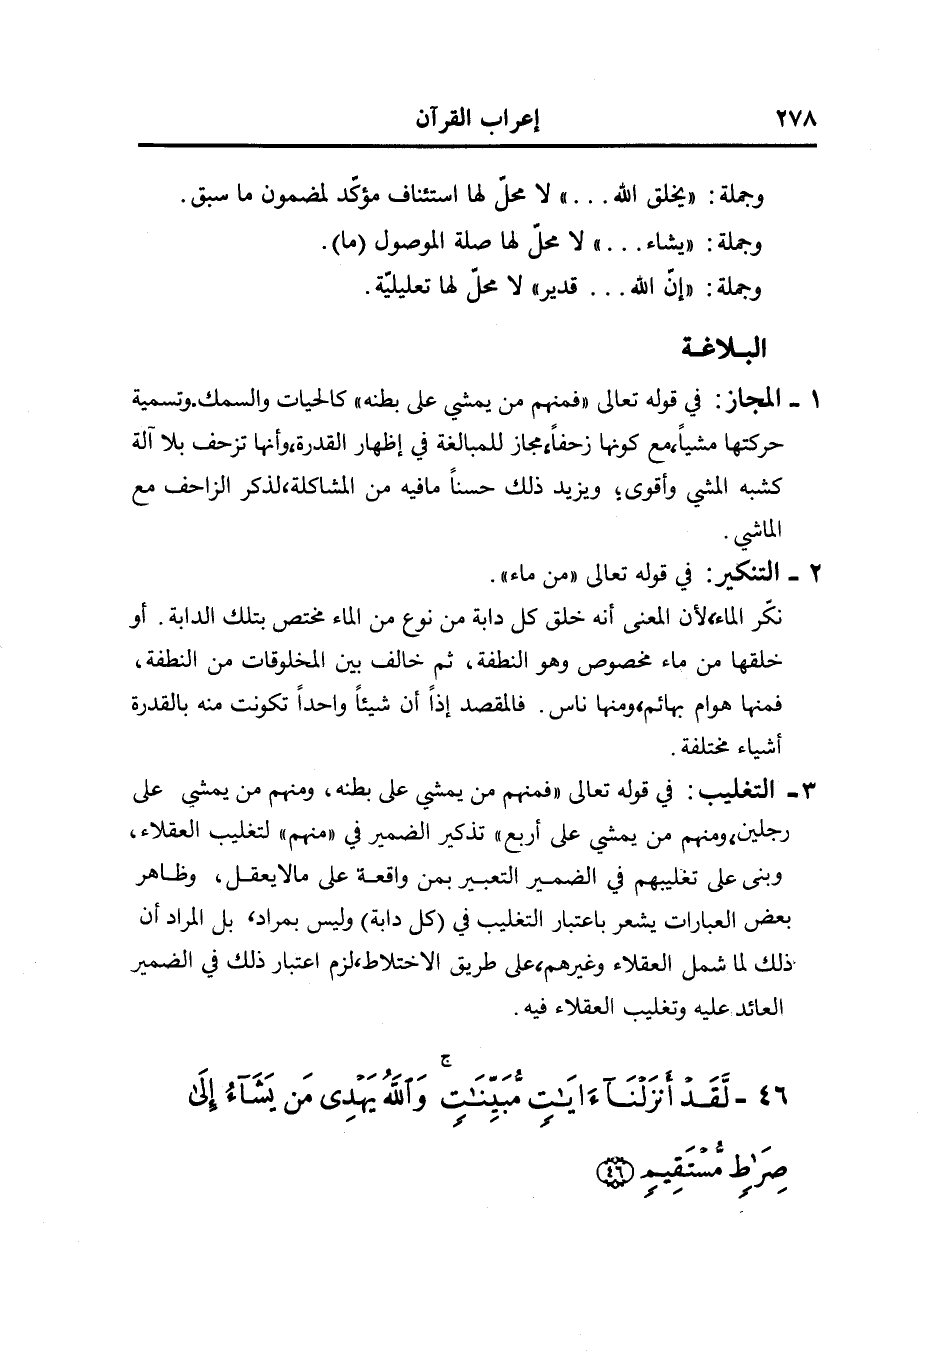 ٢٧٨ إعراب القرآن
وجملة: «يخلق الله...» لا محلّ لها استئناف مؤكّد لمضمون ما سبق.
وجملة: «يشاء...» لا محلّ لها صلة الموصول (ما).
وجملة: «إنّ الله... قدير» لا محلّ لها تعليليّة.
البـلاغـة
١ ـ المجاز: في قوله تعالى «فمنهم من يمشي على بطنه» كالحيات والسمك.وتسمية
حركتها مشياً،مع كونها زحفاً،مجاز للمبالغة في إظهار القدرة،وأنها تزحف بلا آلة
كشبه المشي وأقوى؛ ويزيد ذلك حسناً مافيه من المشاكلة،لذكر الزاحف مع
الماشي.
٢ ـ التنكير: في قوله تعالى «من ماء».
نكّر الماء،لأن المعنى أنه خلق كل دابة من نوع من الماء مختص بتلك الدابة. أو
خلقها من ماء مخصوص وهو النطفة، ثم خالف بين المخلوقات من النطفة،
فمنها هوام بهائم،ومنها ناس. فالمقصد إذاً أن شيئاً واحداً تكونت منه بالقدرة
أشياء مختلفة.
٣ـ التغليب: في قوله تعالى «فمنهم من يمشي على بطنه، ومنهم من يمشي على
رجلين،ومنهم من يمشي على أربع» تذكير الضمير في «منهم» لتغليب العقلاء،
وبنى على تغليبهم في الضمير التعبير بمن واقعة على مالايعقل، وظاهر
بعض العبارات يشعر باعتبار التغليب في (كل دابة) وليس بمراد، بل المراد أن
ذلك لما شمل العقلاء وغيرهم،على طريق الاختلاط،لزم اعتبار ذلك في الضمير
العائد عليه وتغليب العقلاء فيه.
٤٦ ـ لَّقَدْ أَنزَلْنَآ ءَايَٰتٍ مُّبَيِّنَٰتٍ ۚ وَٱللَّهُ يَهْدِى مَن يَشَآءُ إِلَىٰ
صِرَٰطٍ مُّسْتَقِيمٍ ﴿٤٦﴾